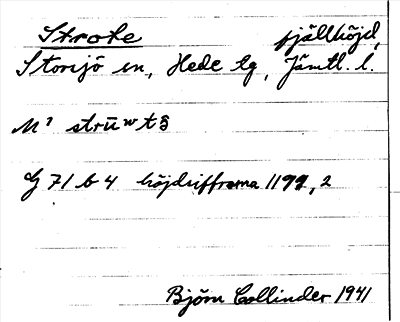 Strote fjällhöjd,
Storsjö sn, Hede tg, Jämtl. l.
M² strūʷtɜ
G 71 b 4 höjdsiffrorna 1199,2
Björn Collinder 1941